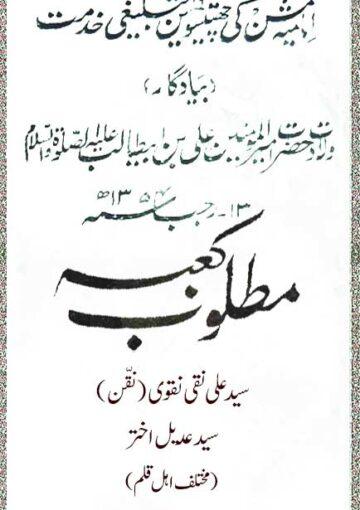 امامیہ مشن کی چھتیسویں تبلیغی خدمت
(بیادگار)
ولادت حضرت امیرالمومنین علی بن ابیطالب علیہ الصلوٰۃ والسلام
۱۳۔رجب ۱۳۵۴ھ
مطلوب کعبہ
سید علی نقی نقوی (نقّن)
سید عدیل اختر
(مختلف اہل قلم)